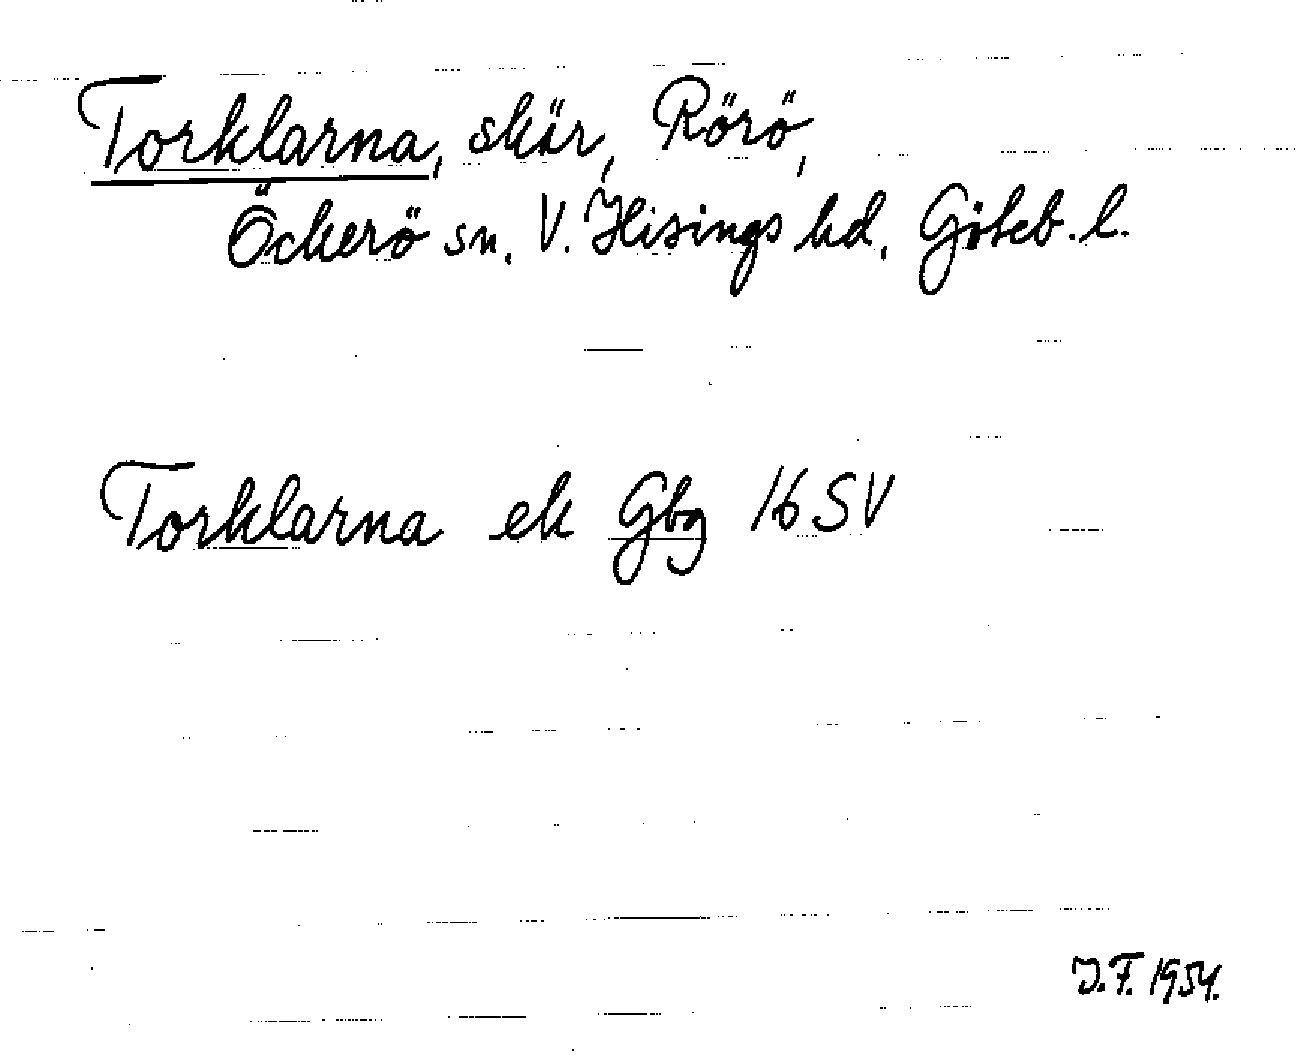 Torklarna, skär, Rörö,
Öckerö sn. V. Hisings hd. Göteb. l.
Torklarna ek Gbg 16 SV
J.F. 1954.